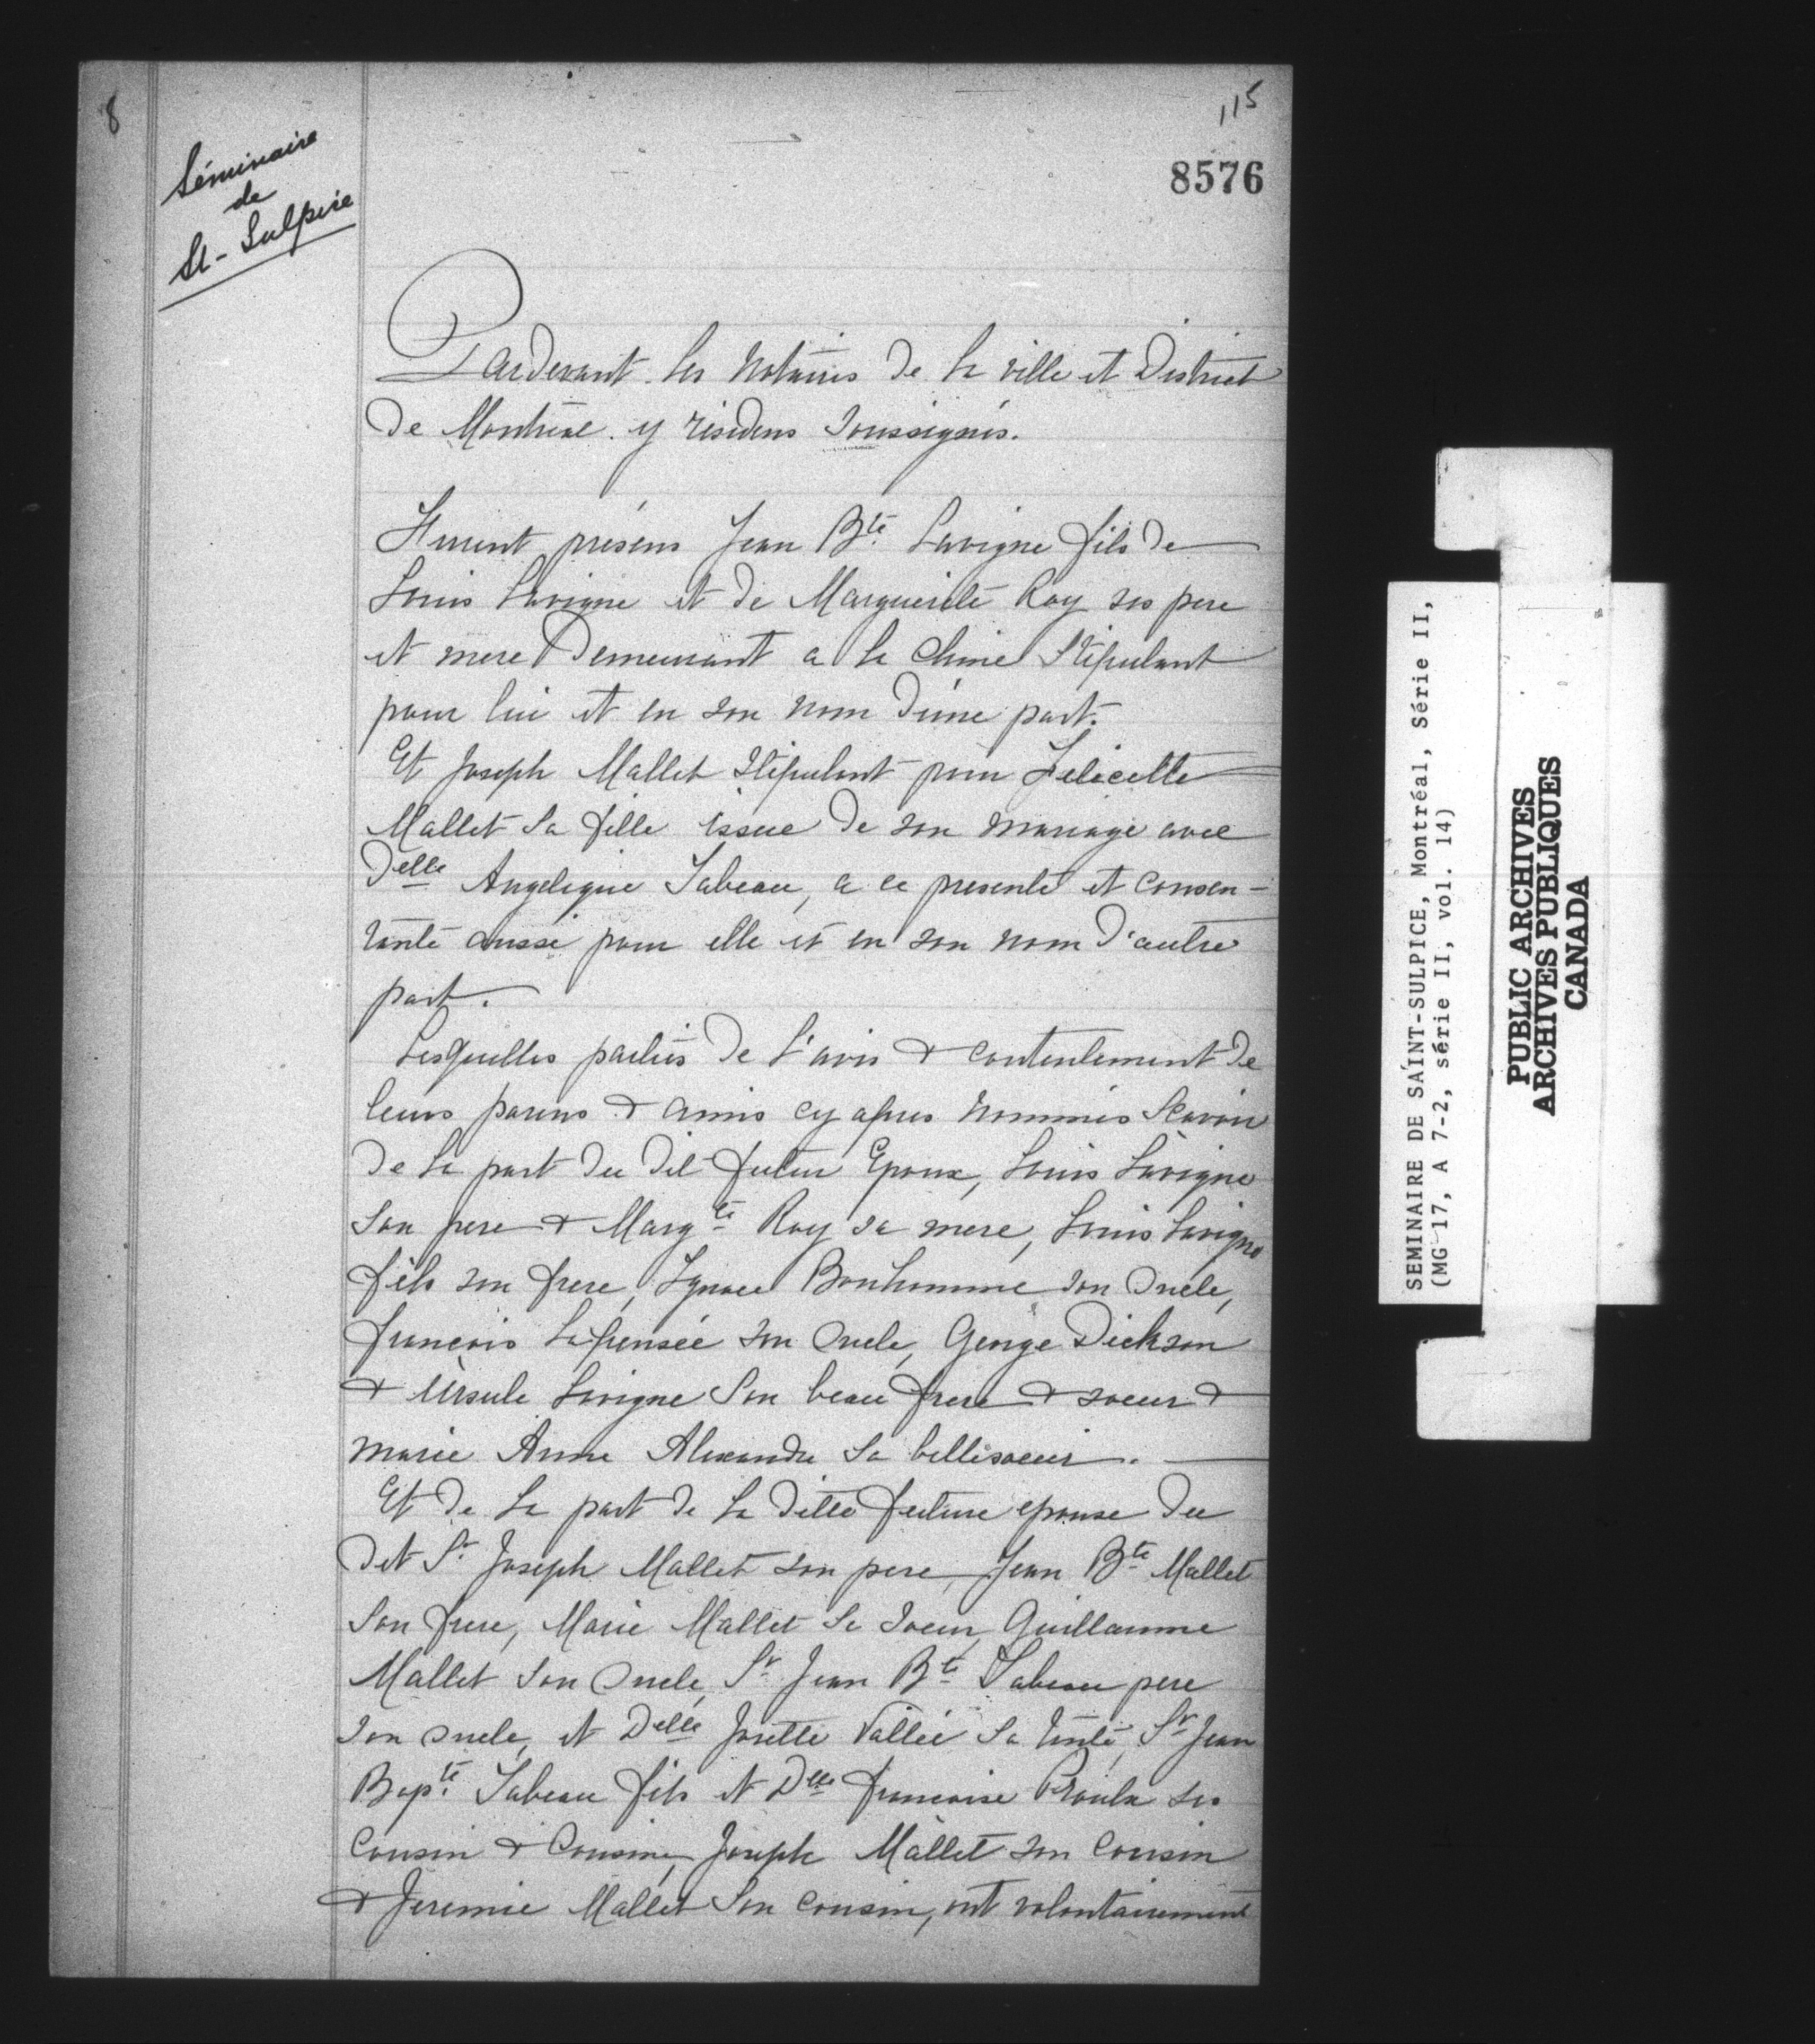 8
115
8576
Séminaire
de
St-Sulpice
Pardevant les Notaires de la ville et District
de Montréal y résidens soussignés.
Furent présens Jean Bte Lavigne fils de
Louis Lavigne et de Marguerite Roy ses pere
et mere Demeurant a la Chine Stipulant
pour lui et en son nom d'une part.
Et Joseph Mallet stipulant pour Felicette
Mallet sa fille issue de son mariage avec
Delle Angelique Sabeau, a ce presente et consen-
tante aussi pour elle et en son nom d'autre
part.
Lesquelles parties de l'avis & contentement de
leurs parens & amis cy apres nommés Scavoir
De la part du dit futur Epoux, Louis Lavigne
son pere & Margte Roy sa mere, Louis Lavigne
fils son frere, Ignace Bonhomme son Oncle,
françois Lapensée son Oncle, George Dickson
& Ursule Lavigne son beau frere & soeur &
marie Anne Alexandre sa bellesoeur.
Et de la part de la ditte future epouse du
dit Sr Joseph Mallet son pere, Jean Bte Mallet
son frere, Marie Mallet sa soeur, Guillaume
Mallet son Oncle, Sr Jean Bte Sabeau pere
son oncle, et Delle Josette Vallée sa tante, Sr Jean
Bapte Sabeau fils et Dlle francoise Proulx ses
cousin & Cousine, Joseph Mallet son cousin
& Jeremie Mallet son cousin, ont volontairement
SEMINAIRE DE SAINT-SULPICE, Montréal, Série II,
(MG 17, A 7-2, série II, vol. 14)
PUBLIC ARCHIVES
ARCHIVES PUBLIQUES
CANADA